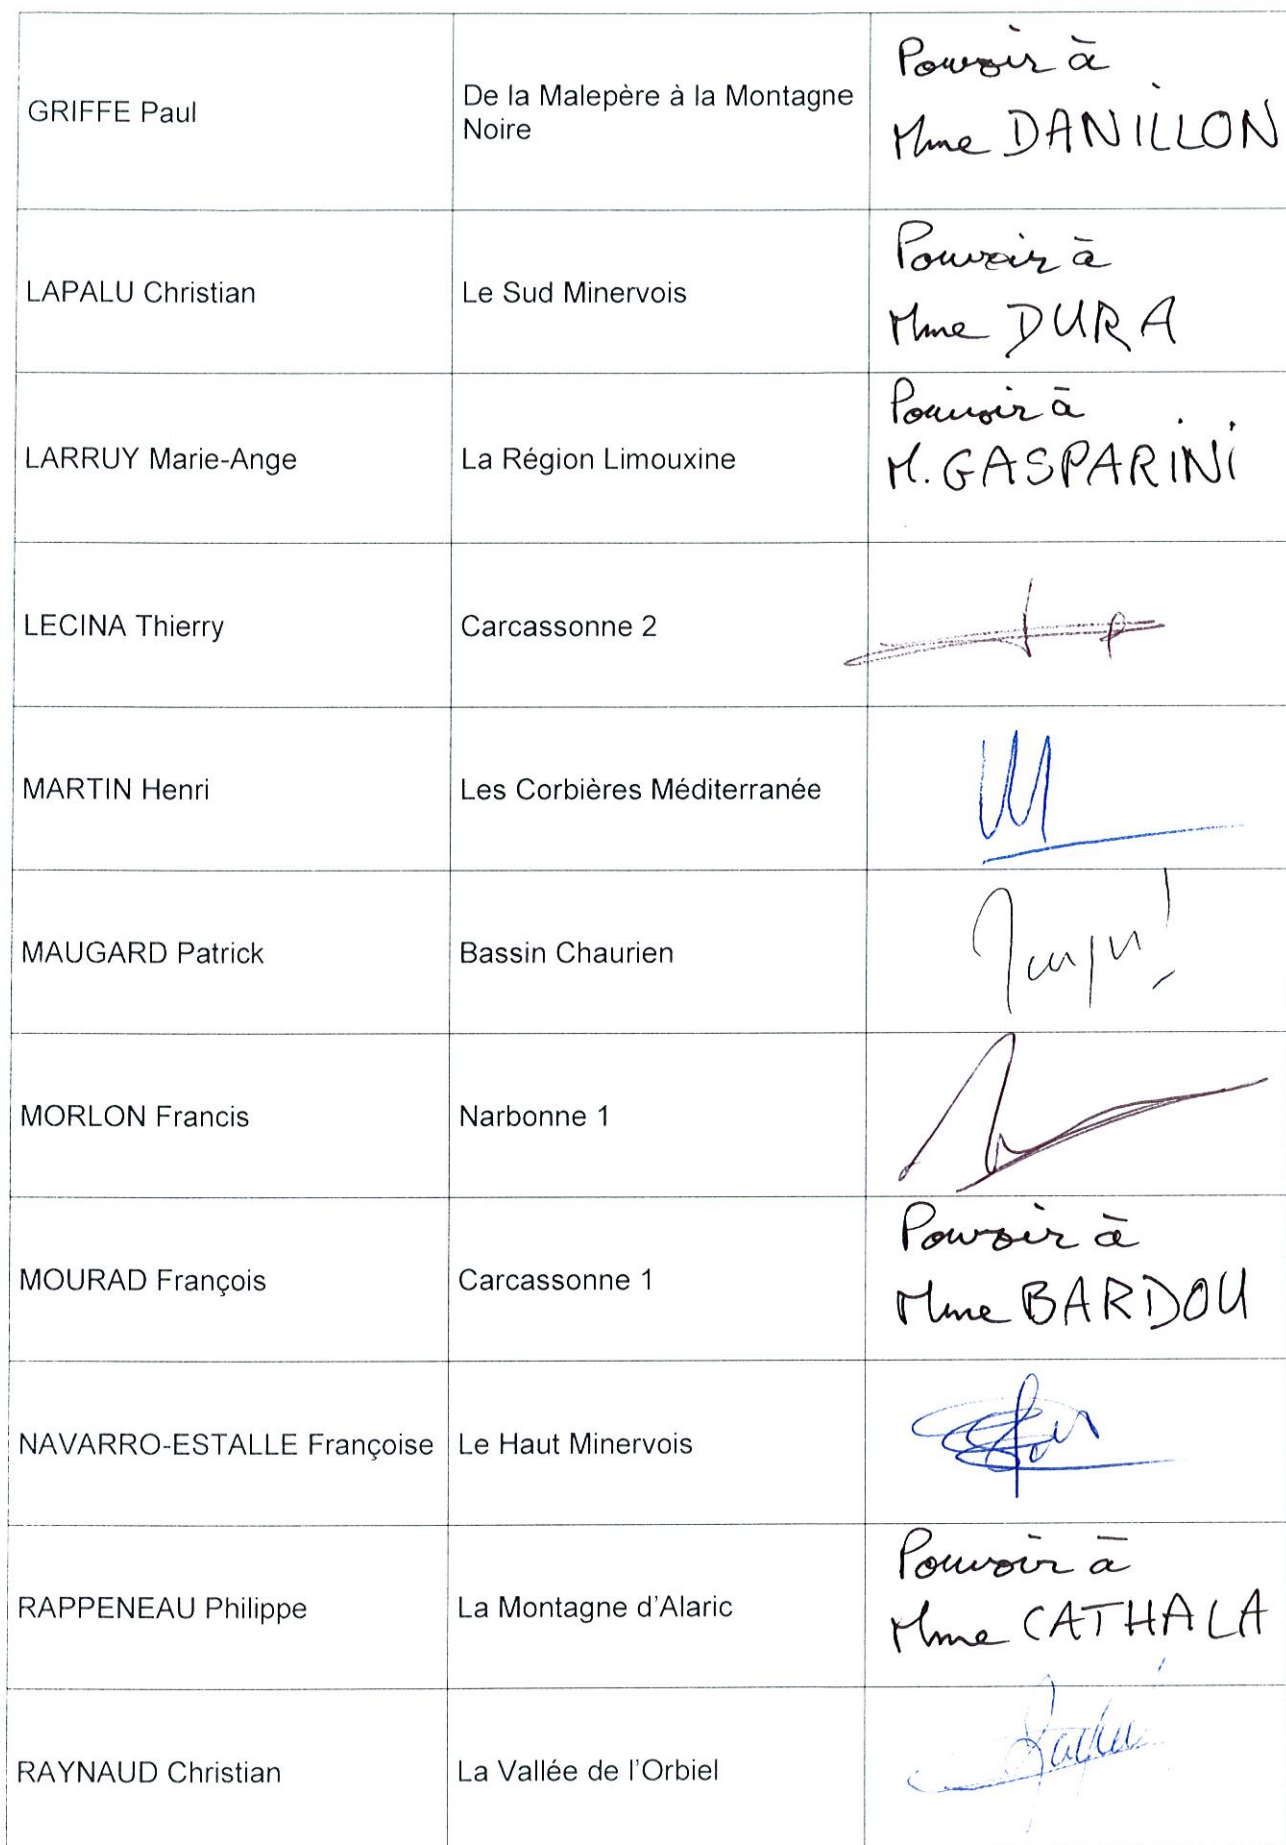 GRIFFE Paul
De la Malepère à la Montagne
Noire
Pouvoir à
Mme DANILLON
LAPALU Christian
Le Sud Minervois
Pouvoir à
Mme DURA
LARRUY Marie-Ange
La Région Limouxine
Pouvoir à
M. GASPARINI
LECINA Thierry
Carcassonne 2
MARTIN Henri
Les Corbières Méditerranée
MAUGARD Patrick
Bassin Chaurien
MORLON Francis
Narbonne 1
MOURAD François
Carcassonne 1
Pouvoir à
Mme BARDOU
NAVARRO-ESTALLE Françoise
Le Haut Minervois
RAPPENEAU Philippe
La Montagne d'Alaric
Pouvoir à
Mme CATHALA
RAYNAUD Christian
La Vallée de l'Orbiel